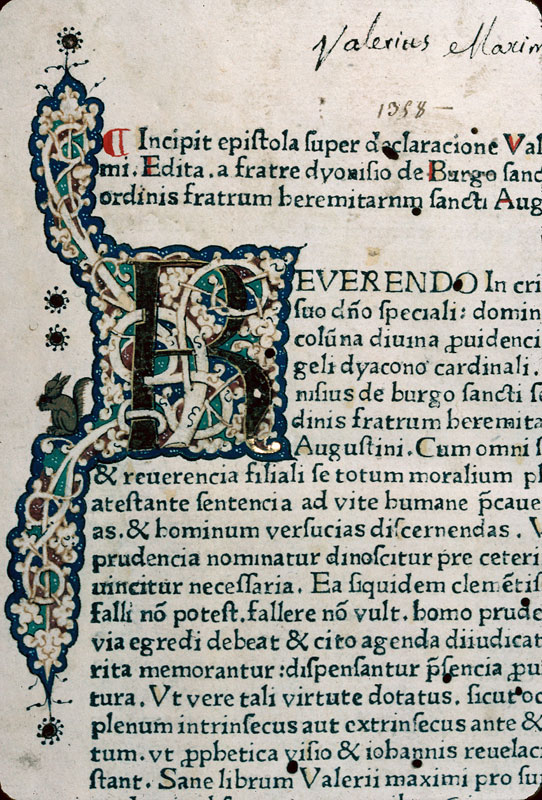 Valerius Maxim
1358 —
¶ Incipit epistola super declaracione Val
mi. Edita. a fratre dyonisio de Burgo sanc
ordinis fratrum heremitarnm sancti Aug
REVERENDO In cri
suo dño speciali: domin
colūna diuina ꝓuidenci
geli dyacono cardinali.
nisius de burgo sancti se
dinis fratrum heremita
Augustini. Cum omni s
& reuerencia filiali se totum moralium pl
atestante sentencia ad vite humane p̄caue
as. & hominum versucias discernendas. V
prudencia nominatur dinoscitur pre ceteri
uincitur necessaria. Ea siquidem clemētis
falli nō potest. fallere nō vult. homo prude
via egredi debeat & cito agenda diiudicat
rita memorantur: dispensantur p̄sencia ꝓui
tura. Vt vere tali virtute dotatus. sicut oc
plenum intrinsecus aut extrinsecus ante &
tum. vt ꝓphetica visio & iohannis reuelaci
stant. Sane librum Valerii maximi pro sui